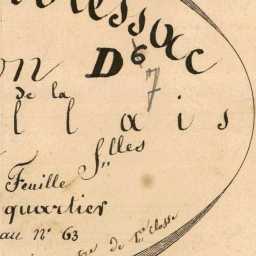 essac
on D 6
7
de la
llais
S.lles
Feuille
quartier
au N° 63
de 1re classe